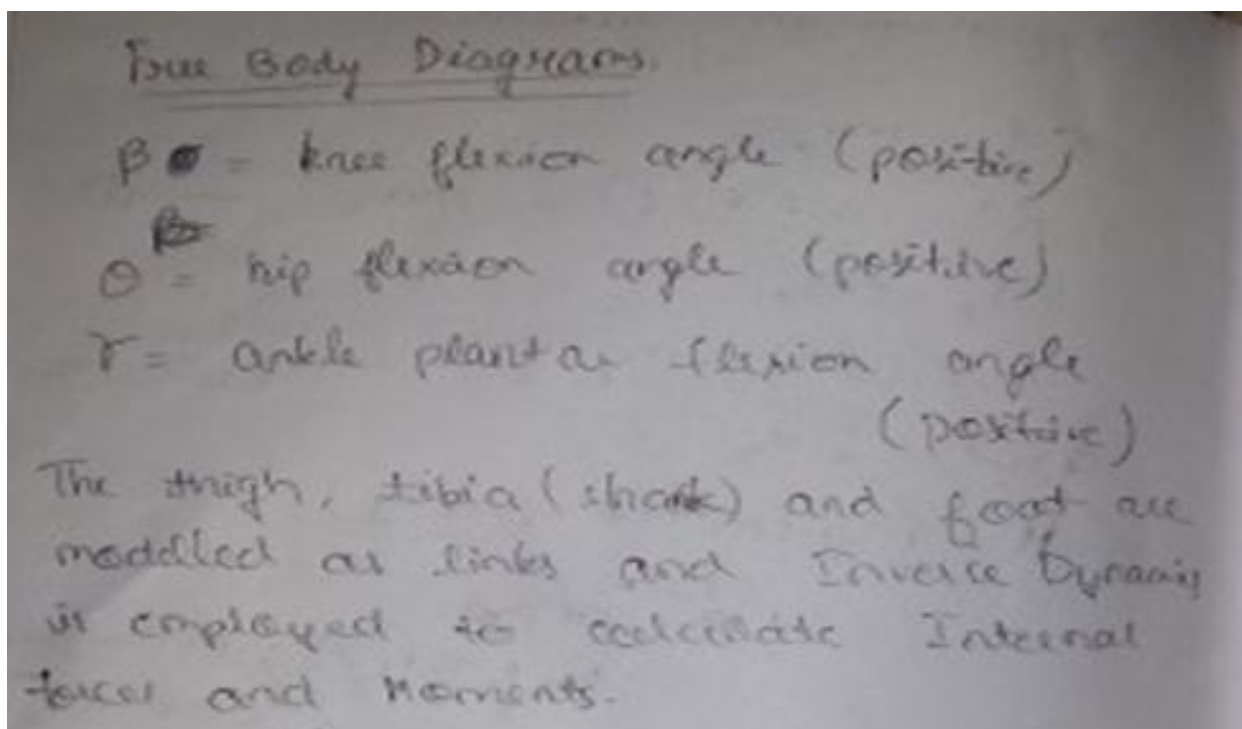 Free Body Diagrams.
β = knee flexion angle (positive)
θ = hip flexion angle (positive)
γ = ankle plantar flexion angle
(positive)
The thigh, tibia (shank) and foot are
modelled as links and Inverse Dynamics
is employed to calculate Internal
forces and Moments.